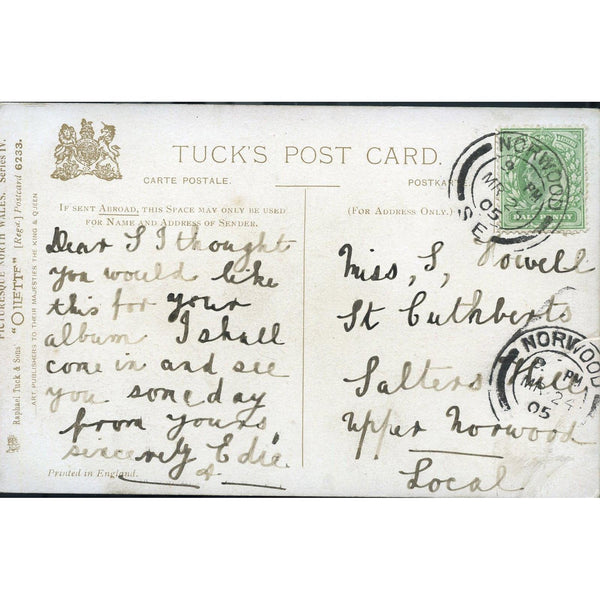 TUCK'S POST CARD.
CARTE POSTALE.
POSTKAR
IF SENT ABROAD, THIS SPACE MAY ONLY BE USED
FOR NAME AND ADDRESS OF SENDER.
(FOR ADDRESS ONLY.)
Dear S I thought
you would like
this for your
album I shall
come in and see
you some day
from yours
sincerely Edie
Printed in England.
Miss, S, Powell
St Cuthberts
Salters Hill
Upper Norwood
Local
NORWOOD
PM
MR 24
05
S.E.
HALFPENNY
NORWOOD
PM
MR 24
05
PICTURESQUE NORTH WALES. Series IV.
Raphael Tuck & Sons' "OILETTE" [Regd.] Postcard 6233.
ART PUBLISHERS TO THEIR MAJESTIES THE KING & QUEEN